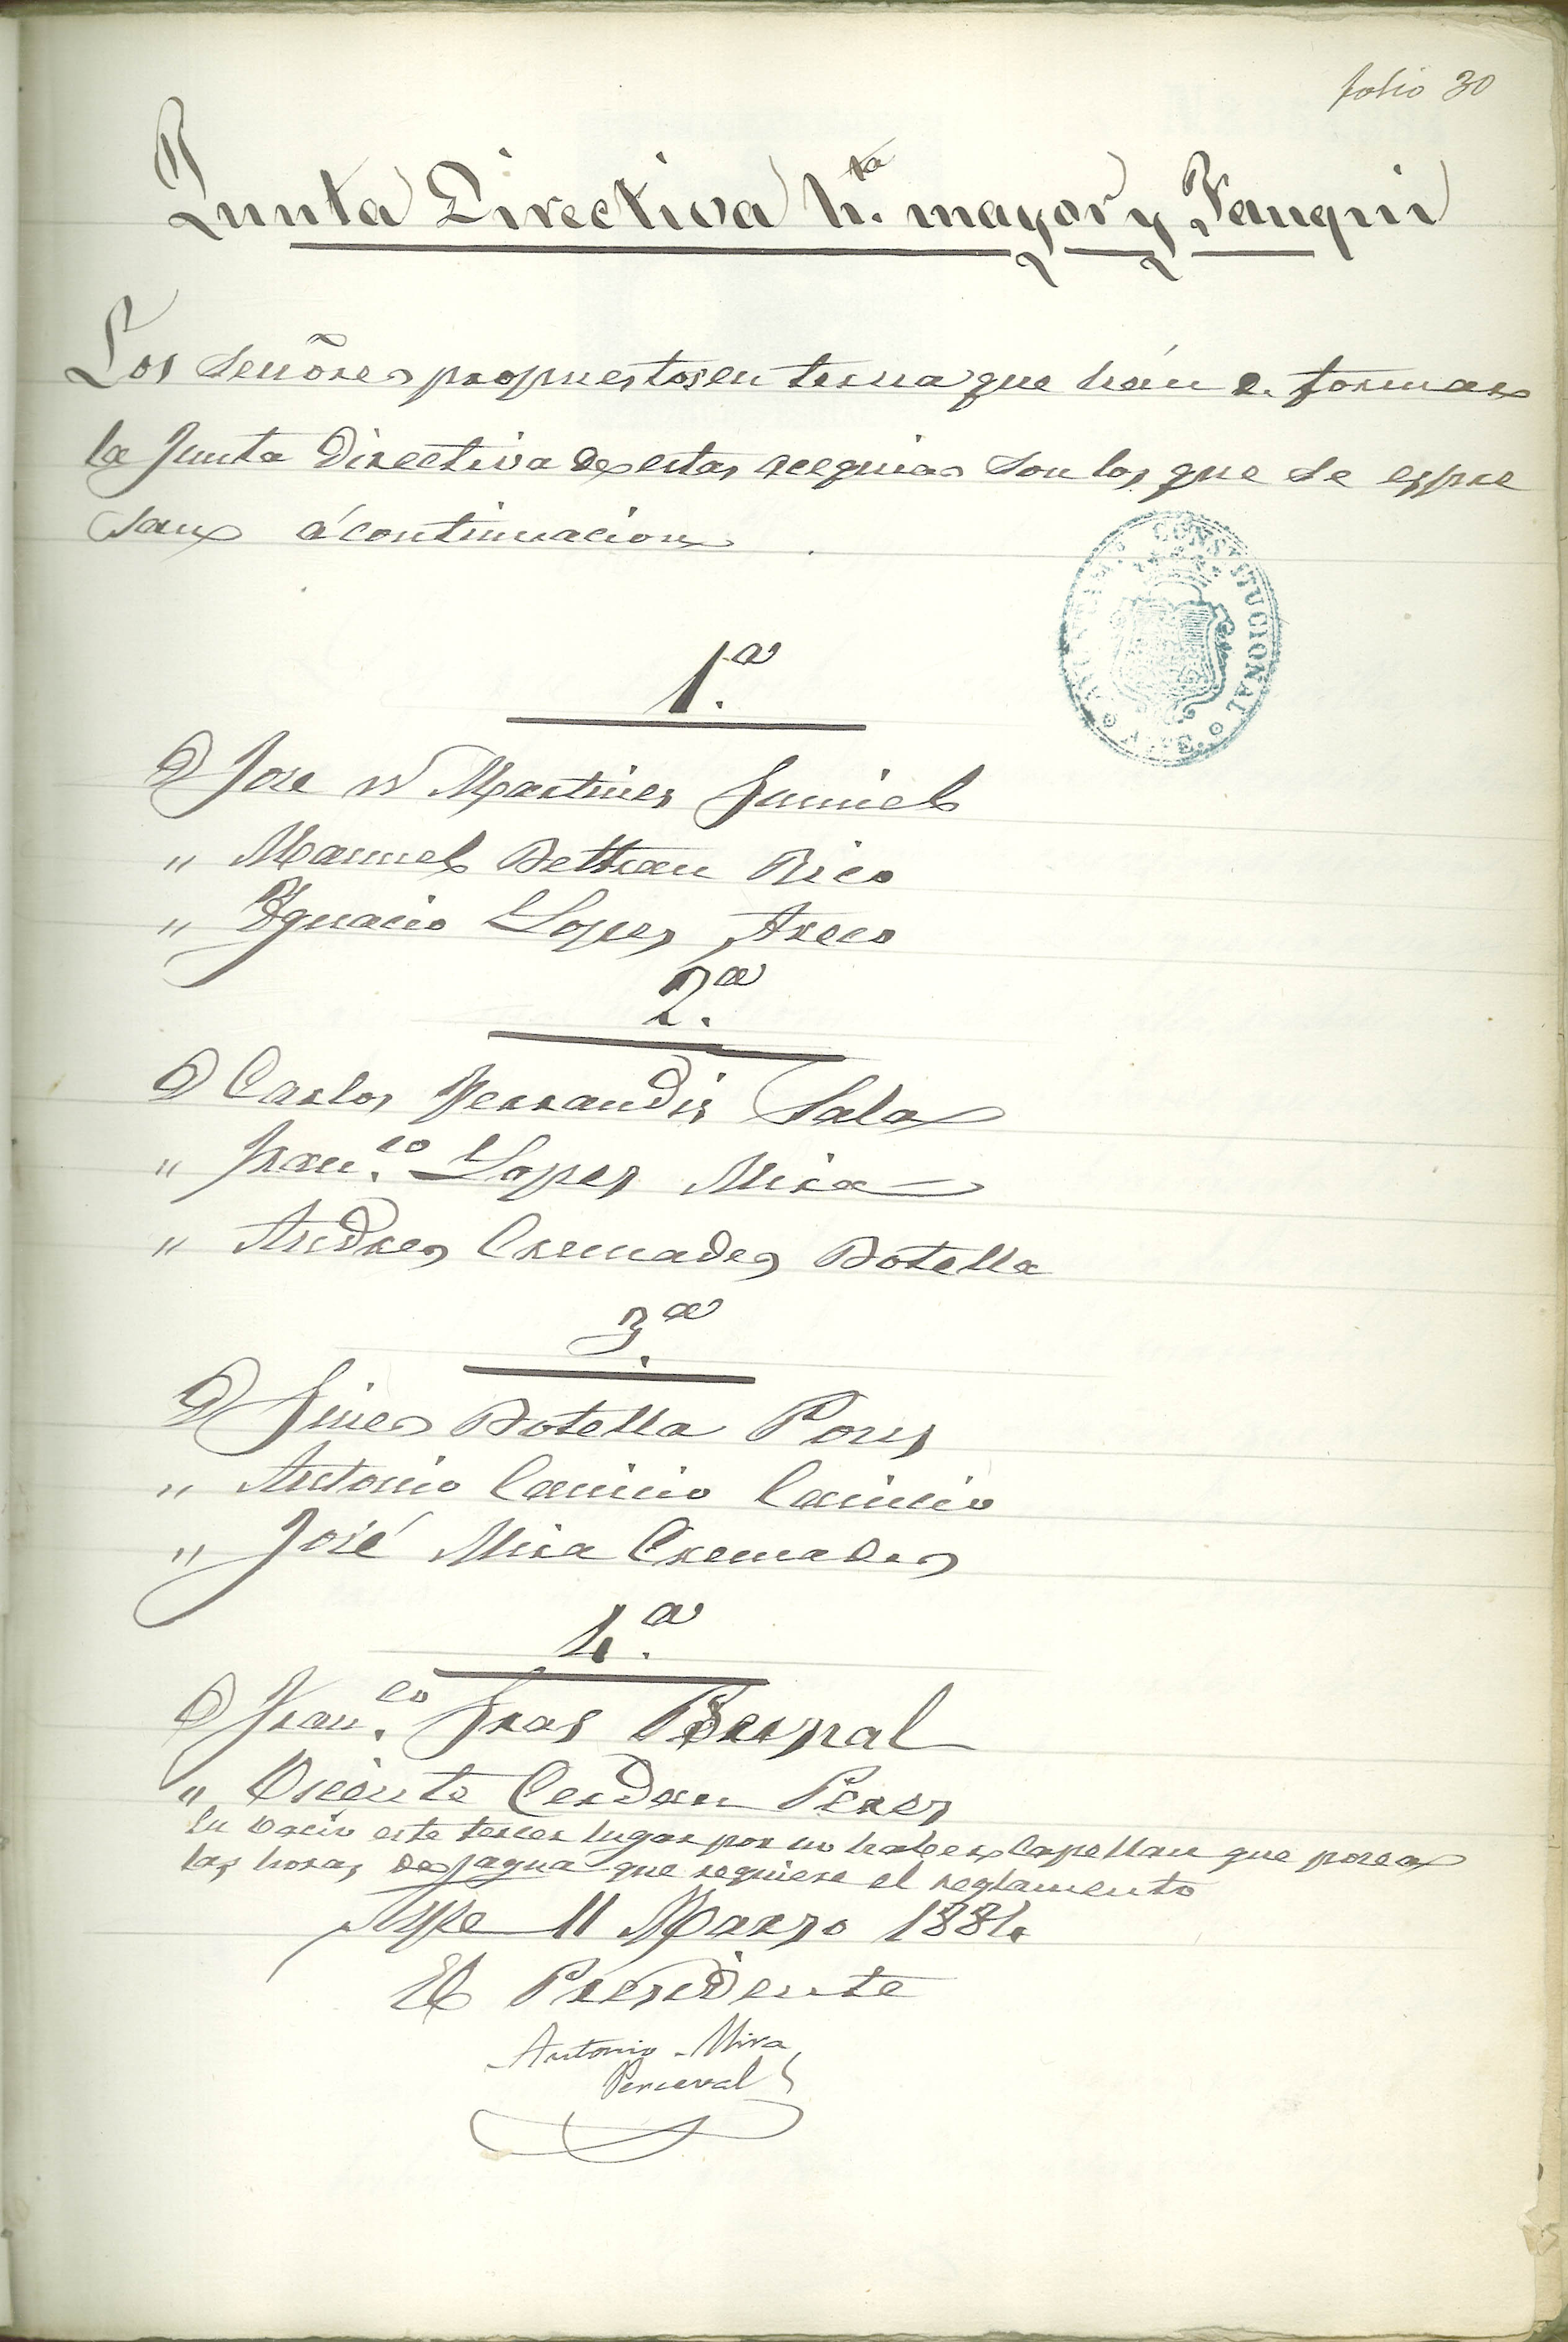 folio 30
Junta Directiva h.ta mayor y Fauquir
Los Señores propuestos en terna que hán de formar
la Junta Directiva de estas acequias son los que se espre
san á continuacion
CONSTITUCIONAL
1.a
D Jose M Martinez Gumiel
" Manuel Beltran Rico
" Ygnacio Lopez Azeco
2.a
D Carlos Ferrandis Sala
" Fran.co Lopez Mira
" Andres Cremades Botella
3.a
D Gines Botella Pons
" Antonio Canicio Canicio
" José Mira Cremades
4.a
D Fran.co Gras Bernal
" Vicente Cerdan Perez
En vacio este tercer lugar por no haber Capellan que posea
las horas de agua que requiere el reglamento
Aspe 11 Marzo 1884.
El Presidente
Antonio Mira
Perceval